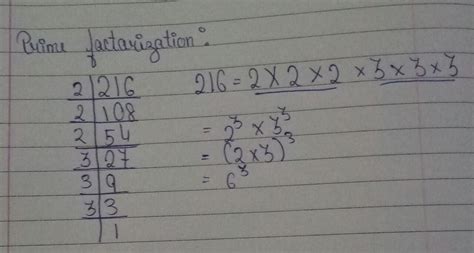 Prime factarization:
2 | 216
2 | 108
2 | 54
3 | 27
3 | 9
3 | 3
| 1
216 = 2 × 2 × 2 × 3 × 3 × 3
= 2³ × 3³
= (2 × 3)³
= 6³